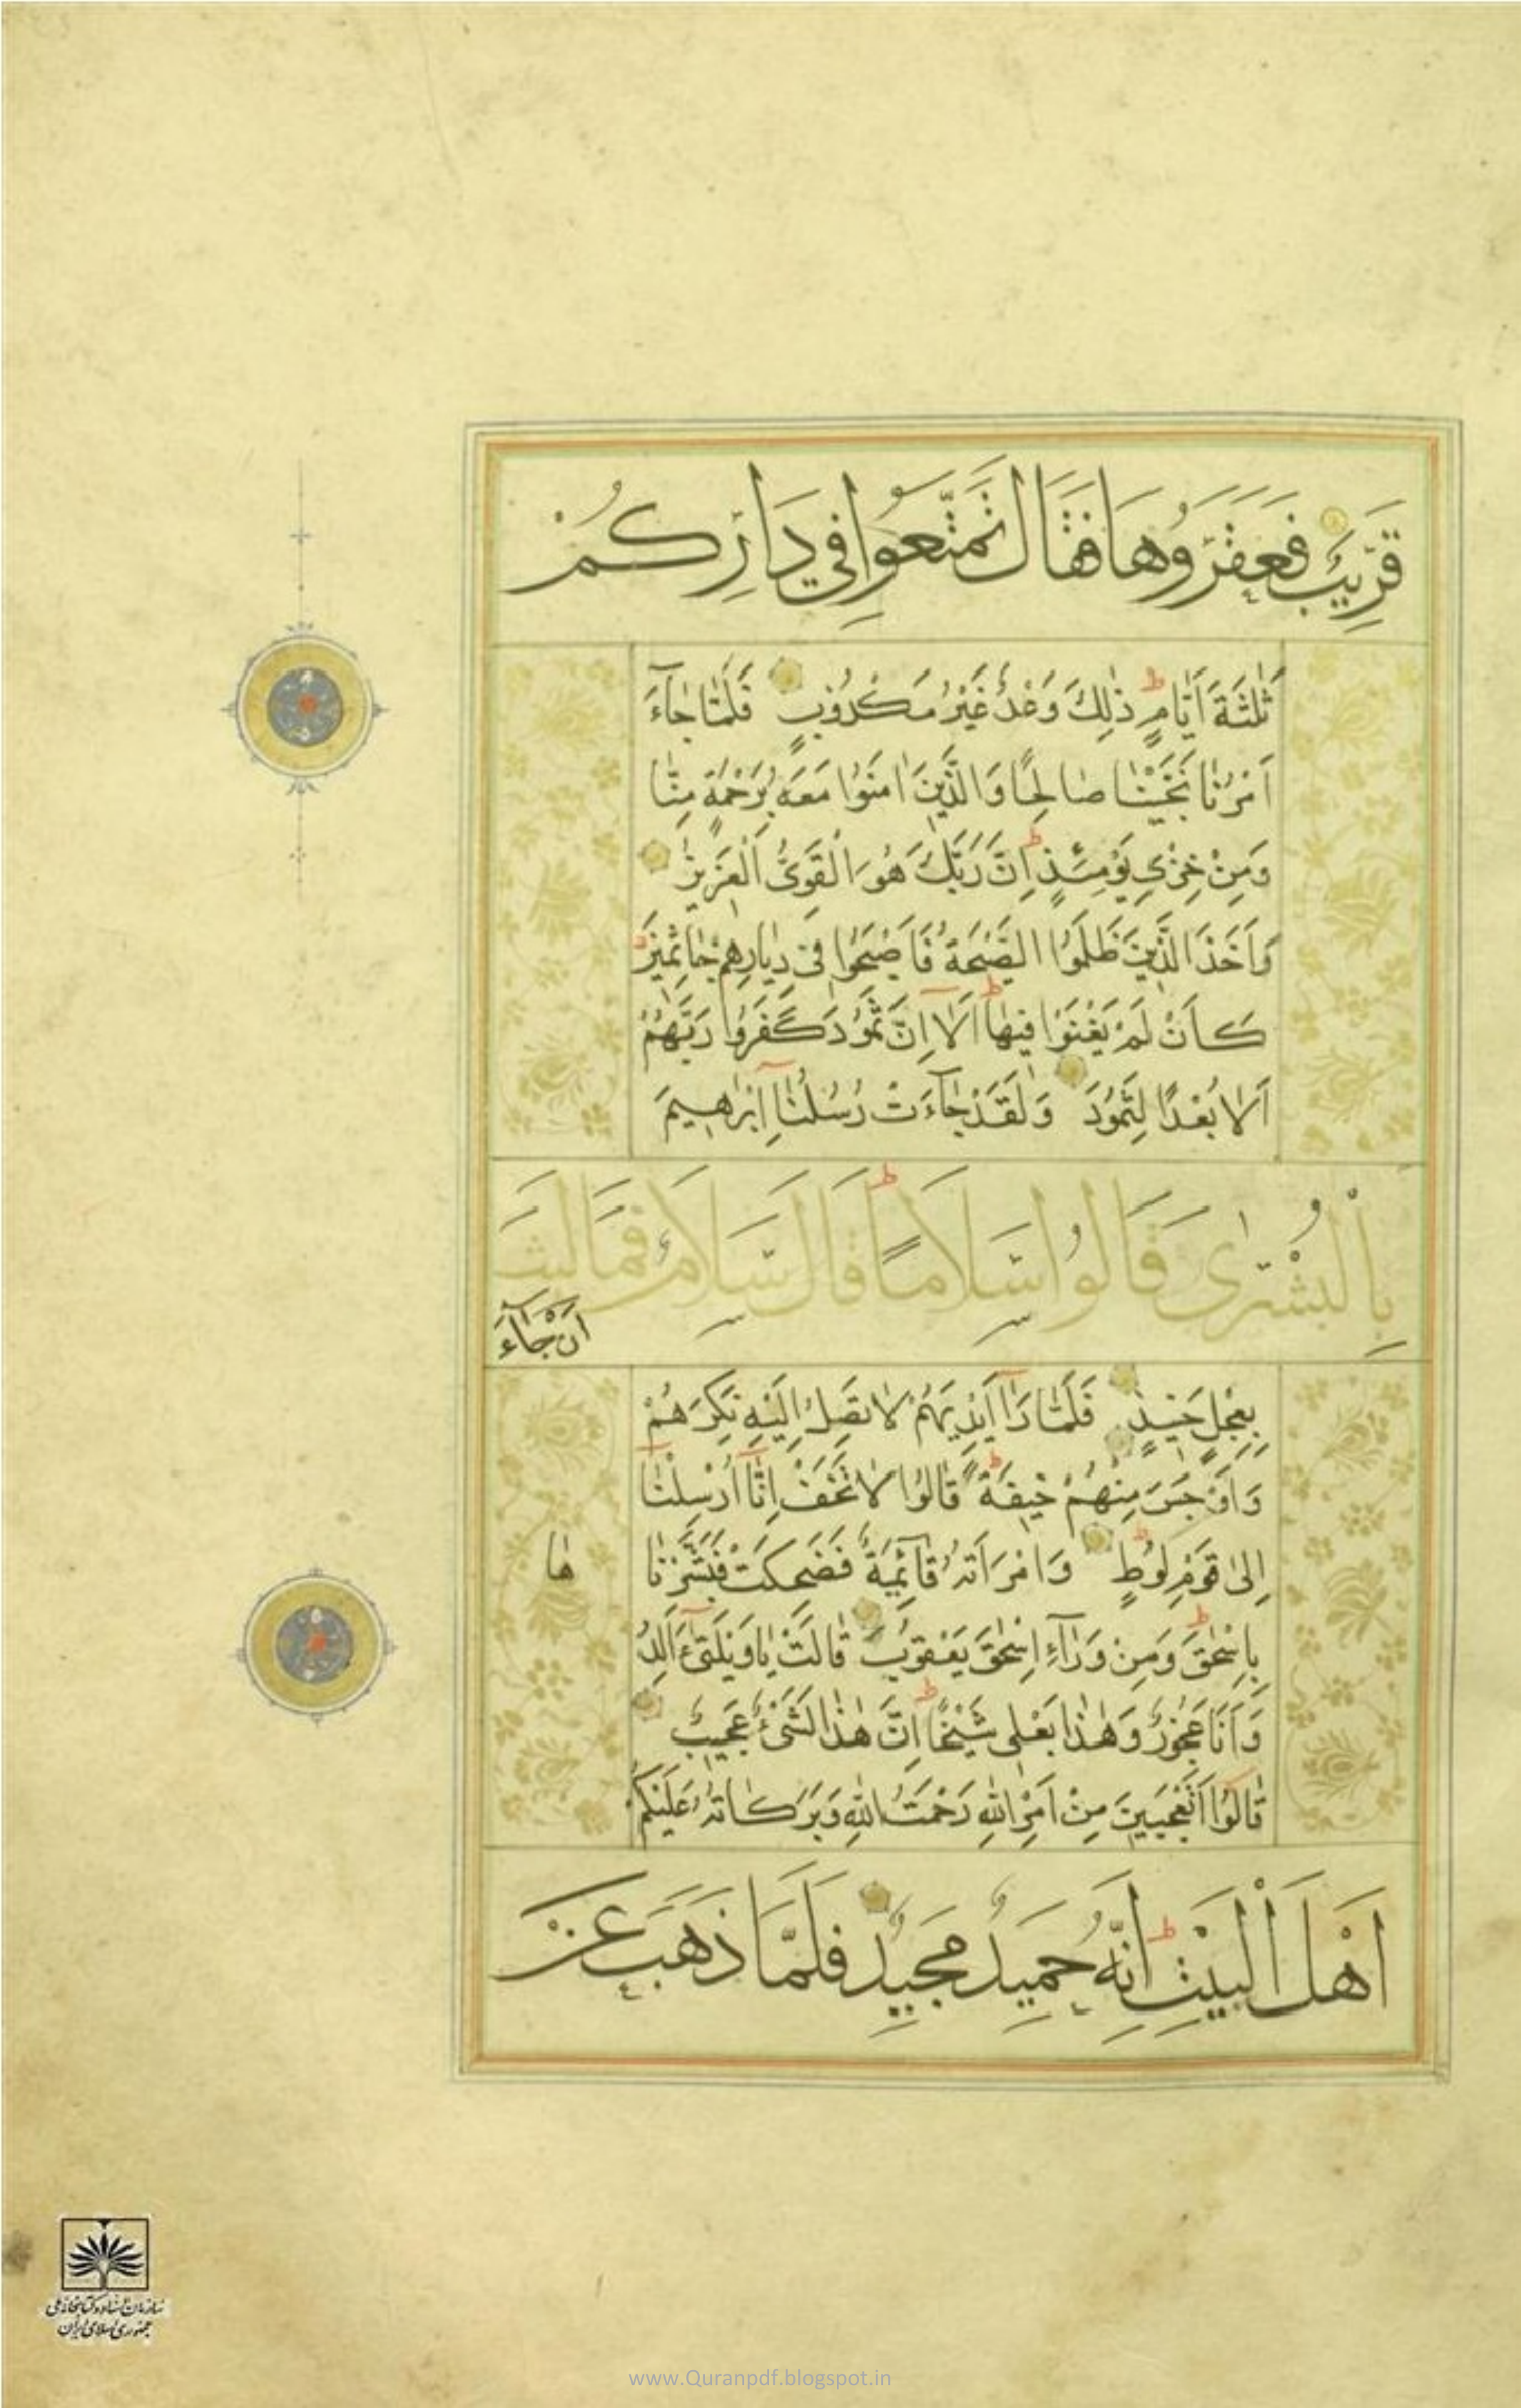 قَرِيبٌ فَعَقَرُوهَا فَقَالَ تَمَتَّعُوا فِي دَارِكُمْ
ثَلٰثَةَ اَيَّامٍ ط ذٰلِكَ وَعْدٌ غَيْرُ مَكْذُوبٍ فَلَمَّا جَآءَ
اَمْرُنَا نَجَّيْنَا صَالِحًا وَالَّذِينَ اٰمَنُوا مَعَهُ بِرَحْمَةٍ مِنَّا
وَمِنْ خِزْيِ يَوْمِئِذٍ ط اِنَّ رَبَّكَ هُوَ الْقَوِيُّ الْعَزِيزُ
وَاَخَذَ الَّذِينَ ظَلَمُوا الصَّيْحَةُ فَاَصْبَحُوا فِي دِيَارِهِمْ جَاثِمِينَ
كَاَنْ لَمْ يَغْنَوْا فِيهَا ط اَلَآ اِنَّ ثَمُودَ كَفَرُوا رَبَّهُمْ
اَلَا بُعْدًا لِثَمُودَ وَلَقَدْ جَآءَتْ رُسُلُنَآ اِبْرٰهِيمَ
بِالْبُشْرٰى قَالُوا سَلَامًا ط قَالَ سَلَامٌ فَمَا لَبِثَ
اَنْ جَآءَ
بِعِجْلٍ حَنِيذٍ فَلَمَّا رَآٰ اَيْدِيَهُمْ لَا تَصِلُ اِلَيْهِ نَكِرَهُمْ
وَاَوْجَسَ مِنْهُمْ خِيفَةً ط قَالُوا لَا تَخَفْ اِنَّآ اُرْسِلْنَآ
اِلٰى قَوْمِ لُوطٍ وَامْرَاَتُهُ قَآئِمَةٌ فَضَحِكَتْ فَبَشَّرْنَا
هَا
بِاِسْحٰقَ ط وَمِنْ وَرَآءِ اِسْحٰقَ يَعْقُوبَ قَالَتْ يَا وَيْلَتٰىٓ ءَاَلِدُ
وَاَنَا عَجُوزٌ وَهٰذَا بَعْلِي شَيْخًا ط اِنَّ هٰذَا لَشَيْءٌ عَجِيبٌ
قَالُوٓا اَتَعْجَبِينَ مِنْ اَمْرِ اللّٰهِ رَحْمَتُ اللّٰهِ وَبَرَكَاتُهُ عَلَيْكُمْ
اَهْلَ الْبَيْتِ ط اِنَّهُ حَمِيدٌ مَجِيدٌ فَلَمَّا ذَهَبَ عَنْ
سازمان اسناد و کتابخانه ملی
جمهوری اسلامی ایران
www.Quranpdf.blogspot.in